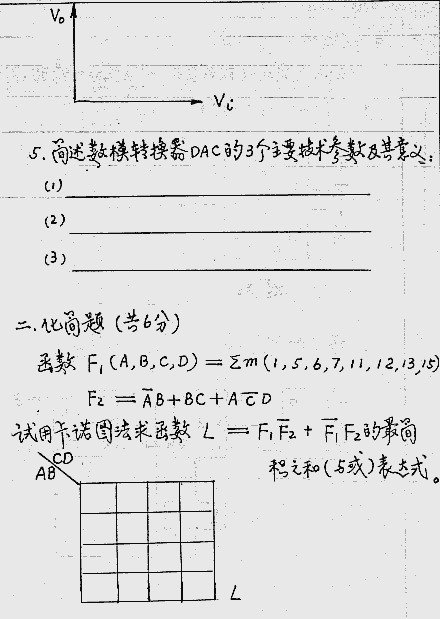 V₀
Vi
5. 简述数模转换器DAC的3个主要技术参数及其意义:
(1)
(2)
(3)
二.化简题 (共6分)
函数 F₁(A,B,C,D) = Σm(1,5,6,7,11,12,13,15)
F₂ = A̅B+BC+AC̅D
试用卡诺图法求函数 L = F₁F̅₂ + F̅₁F₂的最简
积之和(与或)表达式。
CD
AB
L